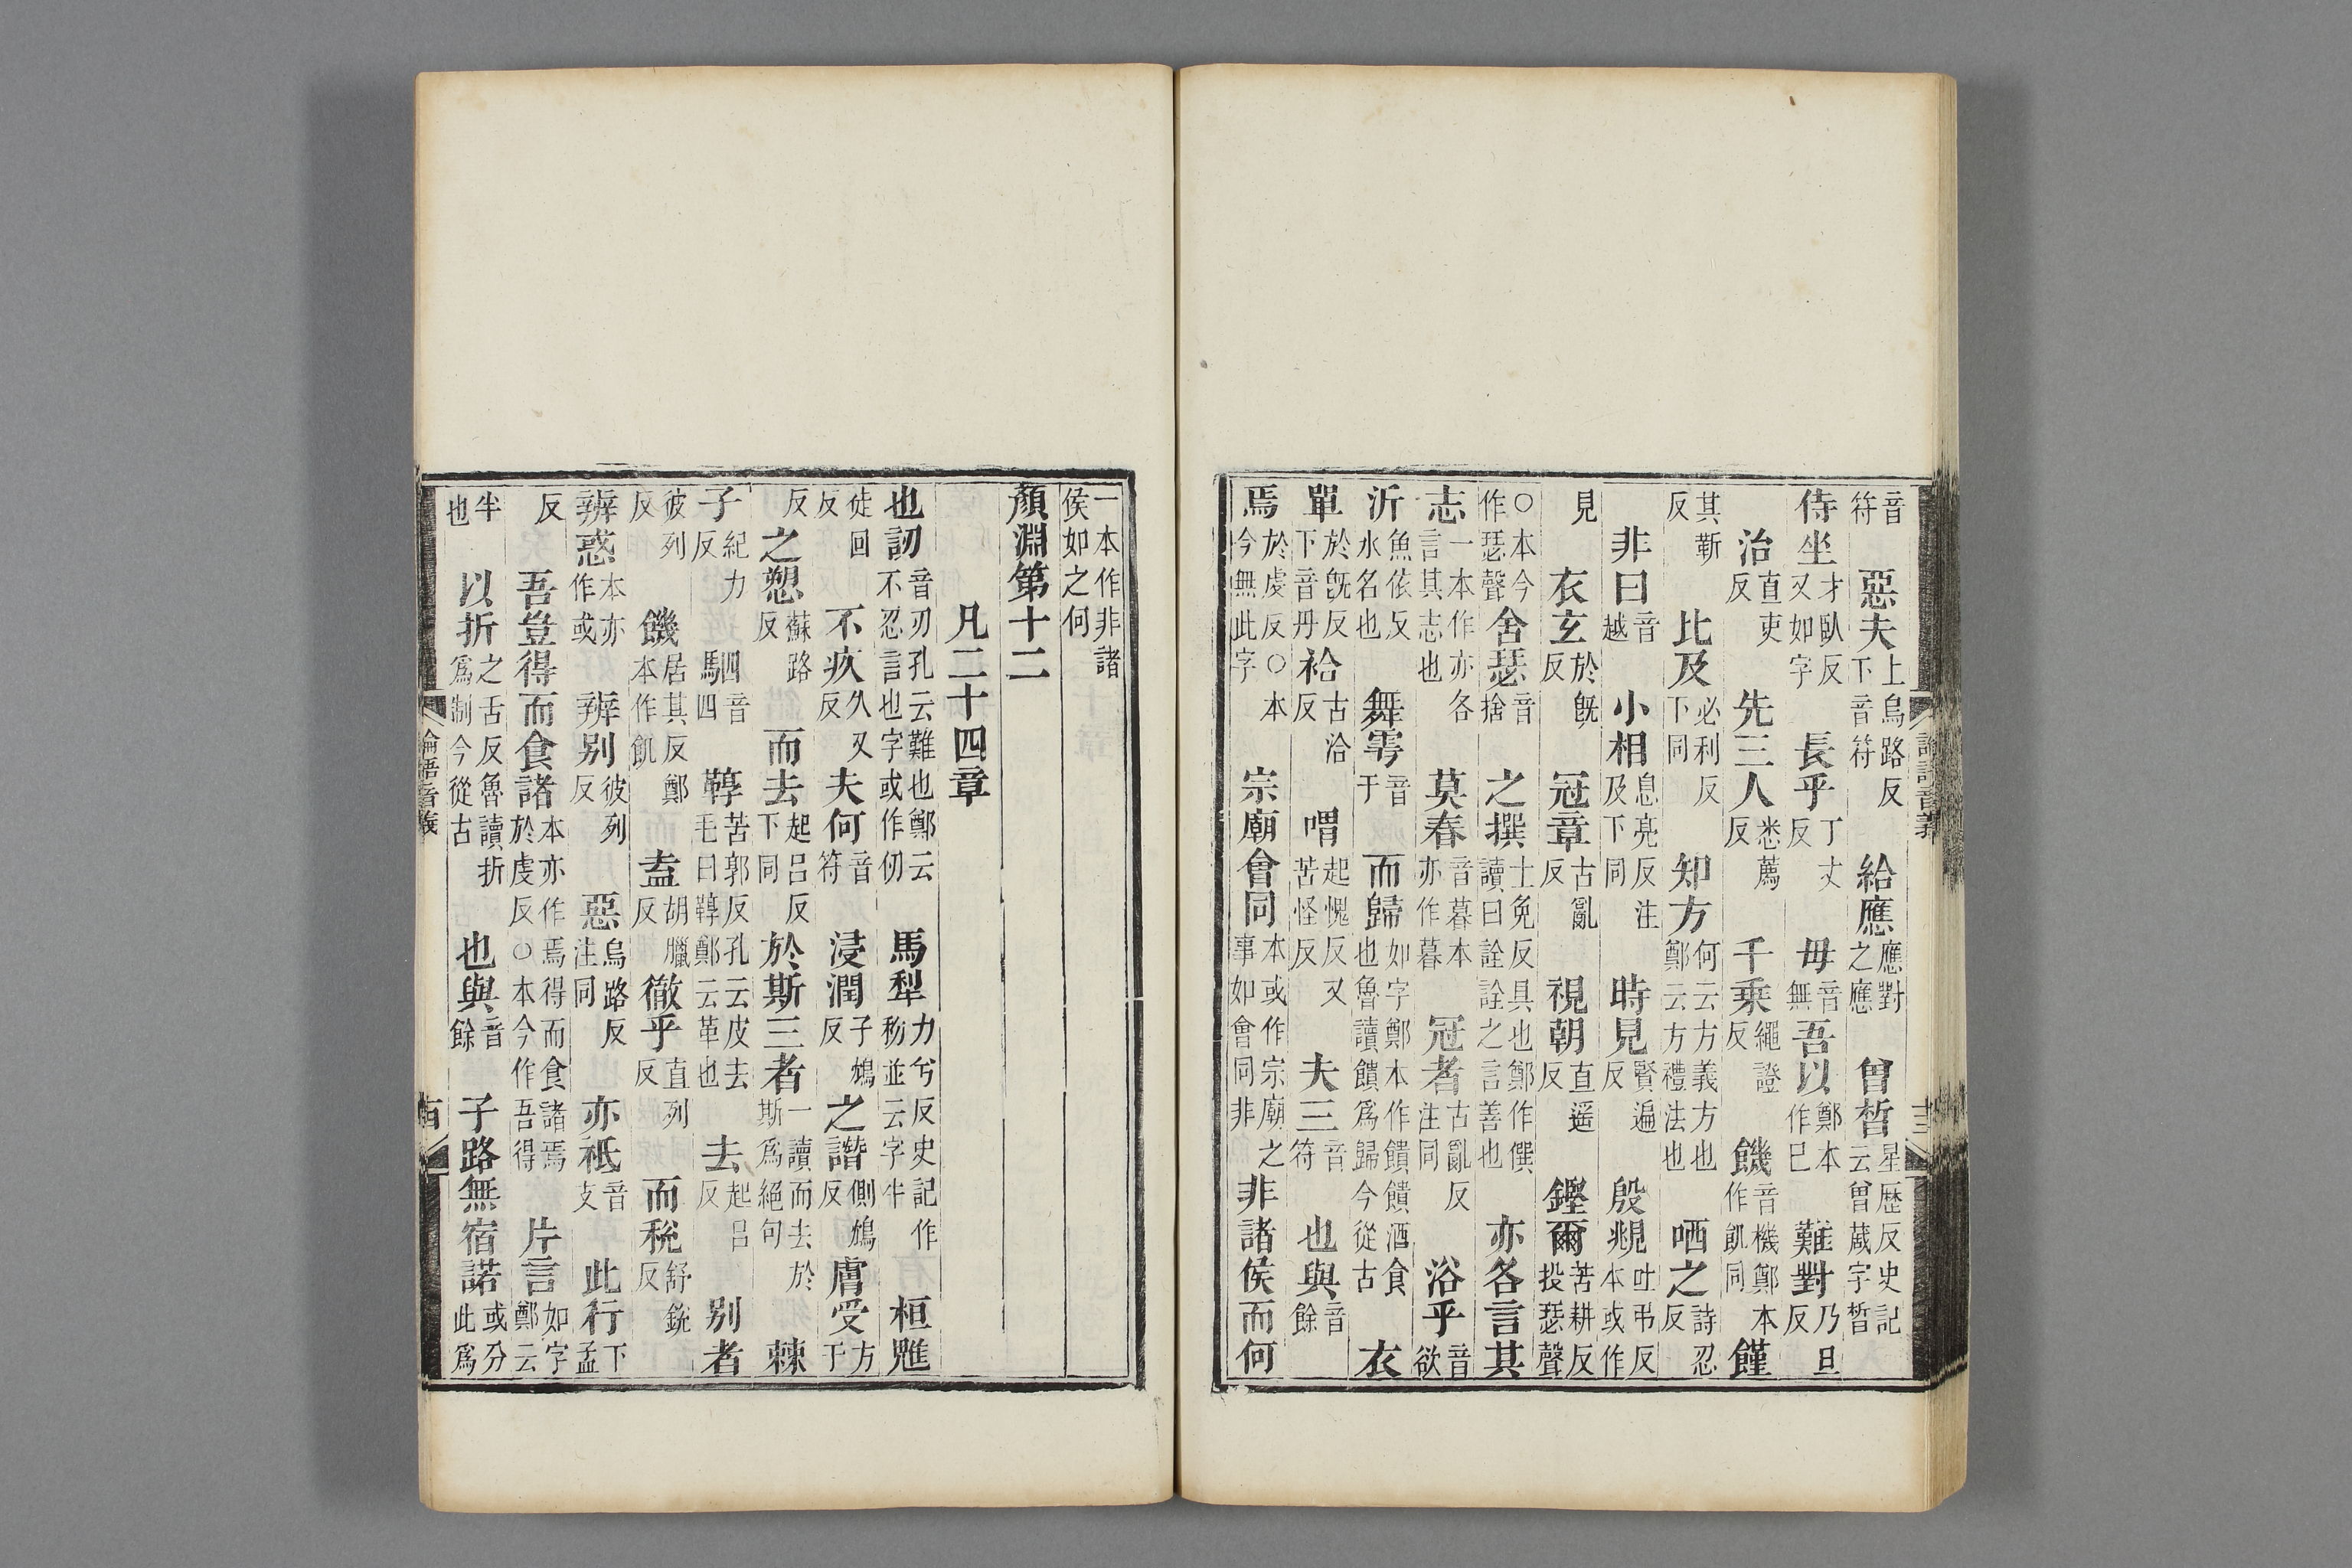 音符惡夫上烏路反下音符給應應對之應曾晳星歷反史記云曾蒧字晳
侍坐才臥反又如字長乎丁丈反毋音無吾以鄭本作巳難對乃旦反
治直吏反先三人悉薦反千乘繩證反饑音機鄭本作飢同饉
其靳反比及必利反下同知方何云方義方也鄭云方禮法也哂之詩忍反
非曰音越小相息亮反注及下同時見賢遍反殷覜吐弔反本或作
見衣玄於旣反冠章古亂反視朝直遥反鏗爾苦耕反投瑟聲
○本今作瑟聲舍瑟音捨之撰士免反具也鄭作僎讀曰詮詮之言善也亦各言其
志一本作亦各言其志也莫春音暮本亦作暮冠者古亂反注同浴乎音欲
沂魚依反水名也舞雩音于而歸如字鄭本作饋饋酒食也魯讀饋爲歸今從古衣
單於旣反下音丹袷古洽反喟起愧反又苦怪反夫三音符也與音餘
焉於虔反○本今無此字宗廟會同本或作宗廟之事如會同非非諸侯而何
論語音義
十三
一本作非諸侯如之何
顏淵第十二
凡二十四章
也訒音刃孔云難也鄭云不忍言也字或作仞馬犁力兮反史記作㓯並云字牛桓魋
徒回反不疚久又反夫何音符浸潤子鴆反之譖側鴆反膚受方于
反之愬蘇路反而去起呂反下同於斯三者一讀而去於斯爲絕句棘
子紀力反駟四音四鞟苦郭反孔云皮去毛曰鞟鄭云革也去起呂反别者
彼列反饑居其反鄭本作飢盍胡臘反徹乎直列反而稅舒銳反
辨惑本亦作或辨别彼列反惡烏路反注同亦祇音支此行下孟
反吾豈得而食諸本亦作焉得而食諸焉於虔反○本今作吾得片言如字鄭云
半也以折之舌反魯讀折爲制今從古也與音餘子路無宿諾或分此爲
論語音義
十四